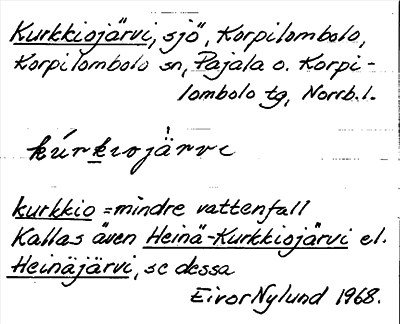 Kurkkiojärvi, sjö, Korpilombolo,
Korpilombolo sn, Pajala o. Korpi-
lombolo tg, Norrb.l.
kúrkiojärvi
kurkkio = mindre vattenfall
Kallas även Heinä-Kurkkiojärvi el.
Heinäjärvi, se dessa
Eivor Nylund 1968.